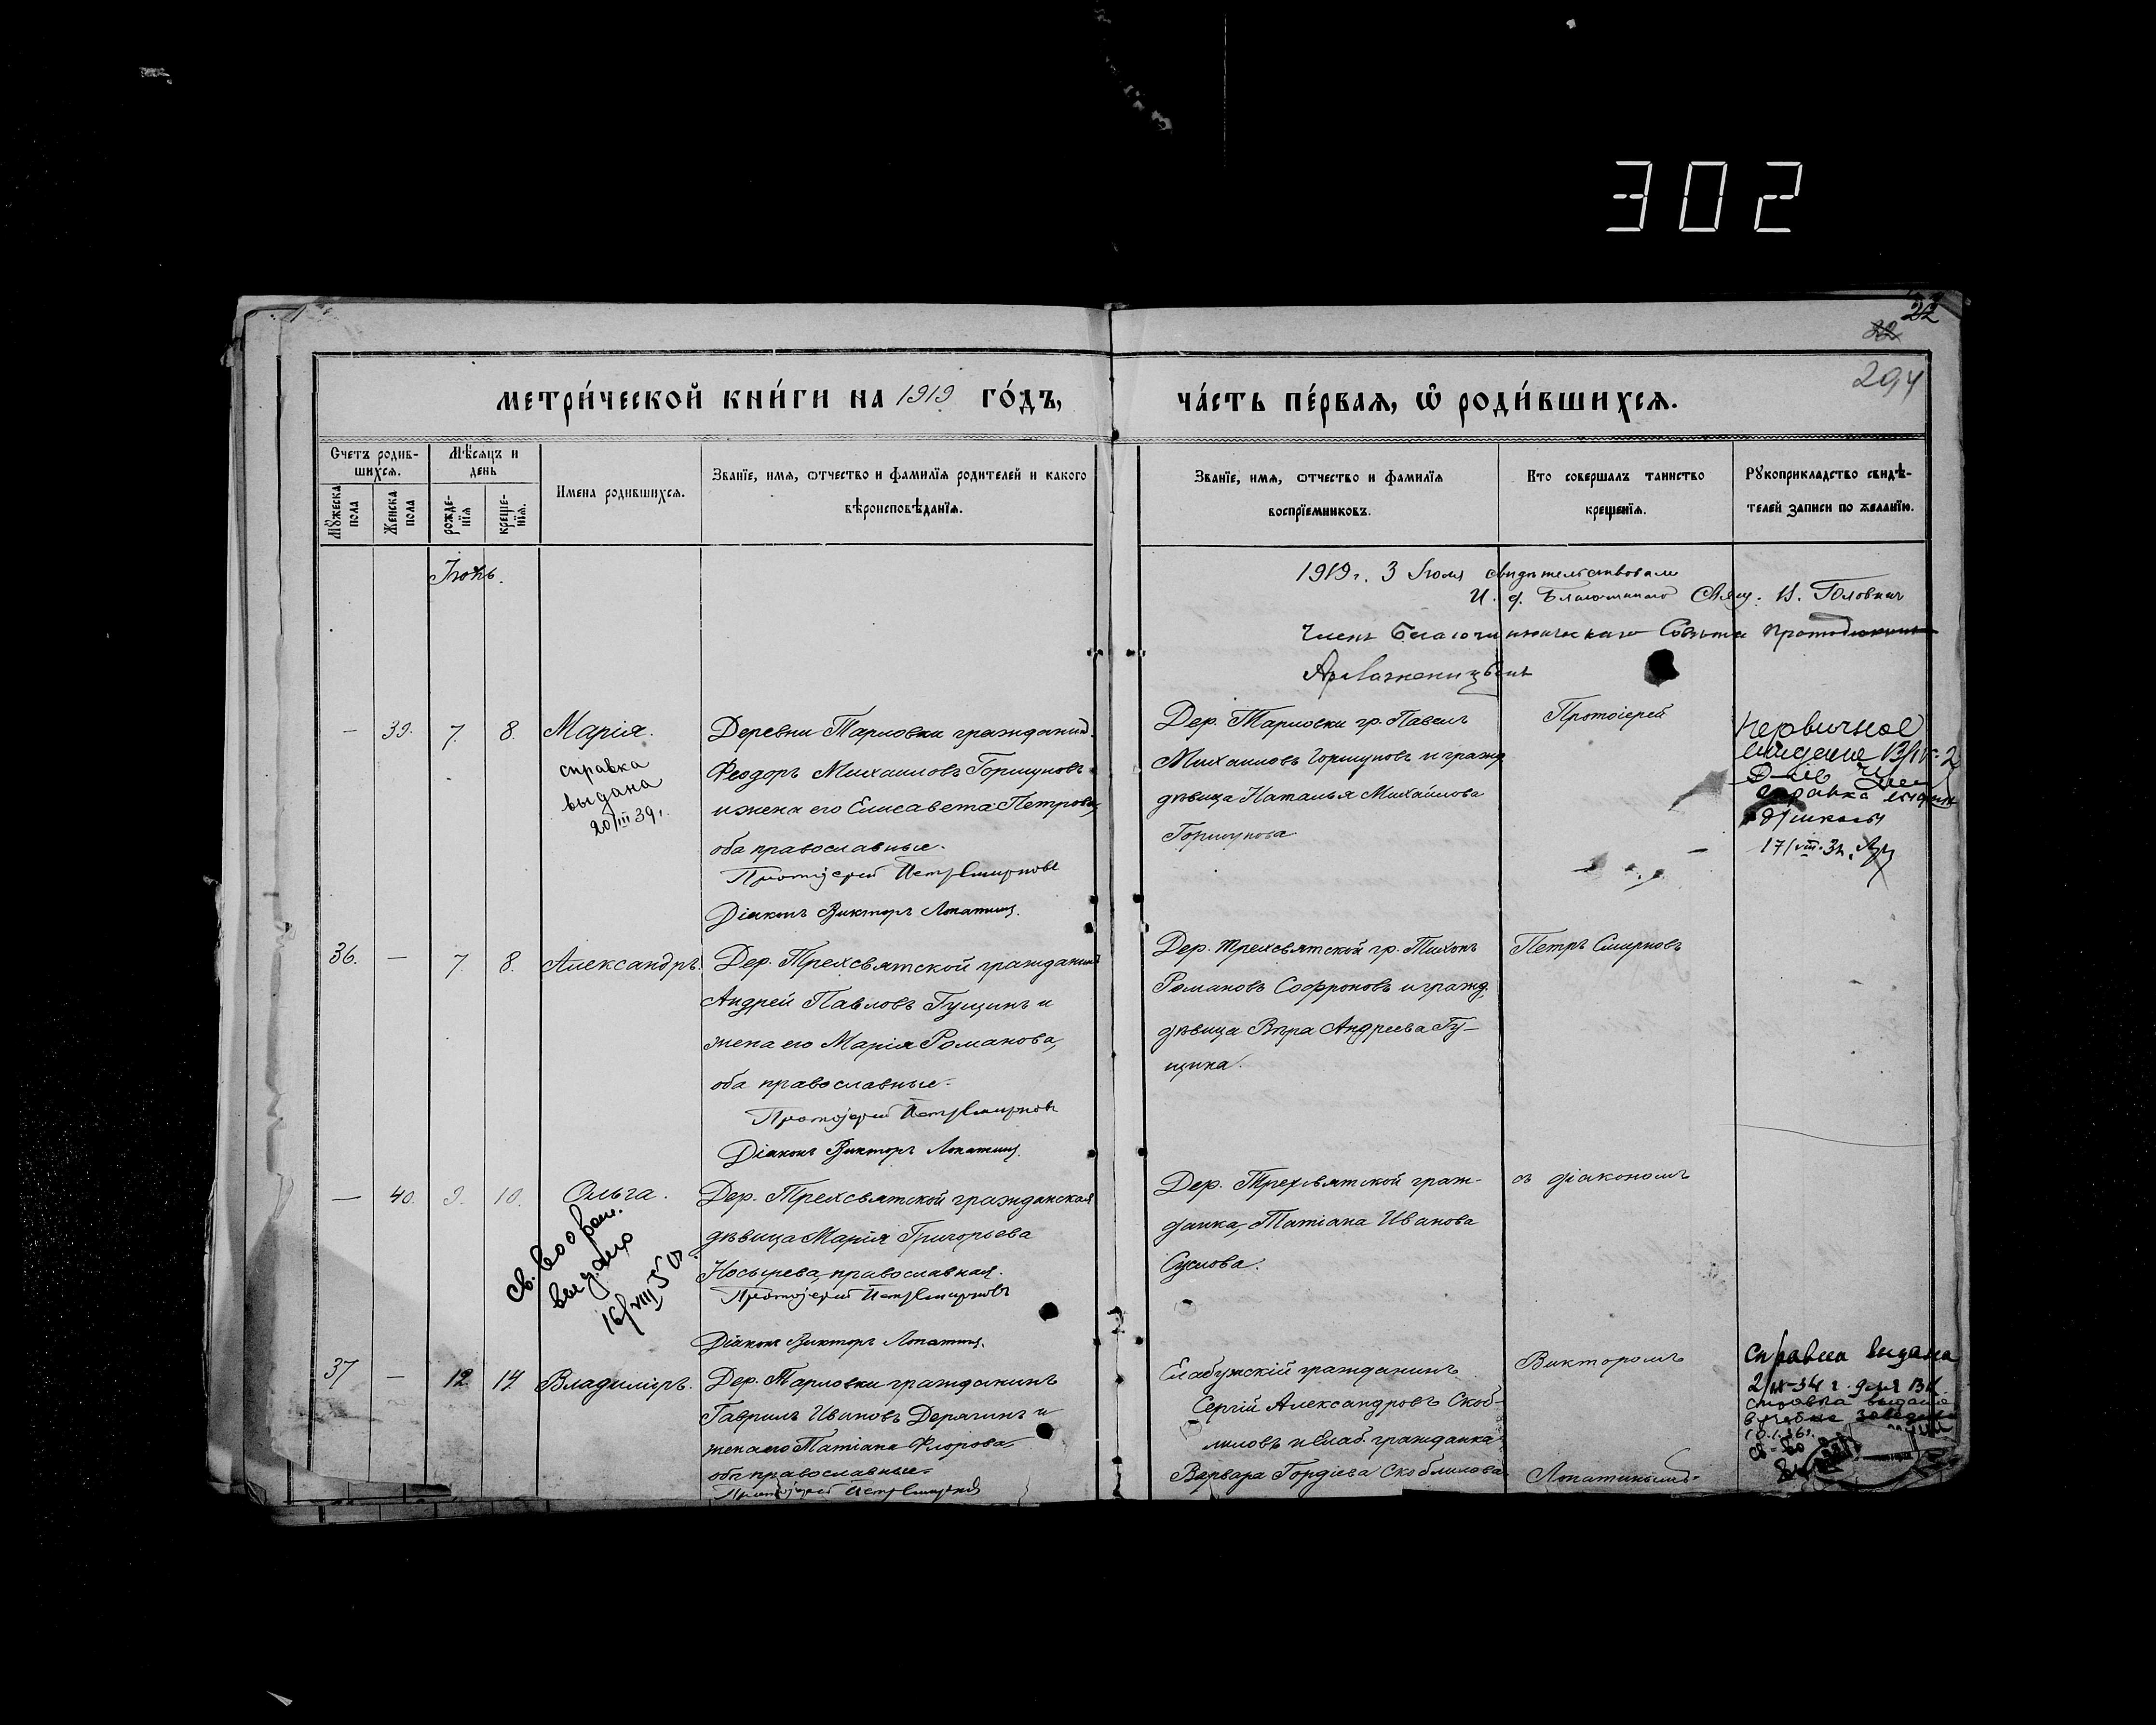 302
22
22
294
метри́ческой кни́ги на 1919 го́дъ,
ча́сть пе́рвая, ѡ҆ роди́вшихся.
Счетъ родив-
шихся.
Мѣсяцъ и
день
Мꙋжеска
пола
Женска
пола
рожде-
нїя
креще-
нїя.
Имена родившихся.
Званїе, имя, ѿчество и фамилїя родителей и какого
вѣроисповѣданїя.
Званїе, имя, ѿчество и фамилїя
воспрїемниковъ.
Кто совершалъ таинство
крещенїя.
Рꙋкоприкладство свидѣ-
телей записи по желанїю.
Іюнь.
1919 г. 3 Іюля свидѣтельствовали
И. д. Благочиннаго Свящ.
Членъ Благочинническаго Совѣта
— 39. 7. 8. Марія.
справка
выдана
20/III 39 г.
Деревни Тарловки гражданин.
Феодоръ Михаиловъ Горшуновъ
и жена его Елисавета Петрова,
оба православные.
Протоіерей Петръ Смирновъ
Діаконъ Викторъ Лопатинъ.
Дер. Тарловки гр. Павелъ
Михаиловъ Горшуновъ и гражд.
дѣвица Наталья Михайлова
Горшунова.
Протоіерей
Первичное
справка
школы
36. — 7. 8. Александръ.
Дер. Трехсвятской гражданинъ
Андрей Павловъ Гущинъ и
жена его Марія Романова,
оба православные.
Протоіерей Петръ Смирновъ
Діаконъ Викторъ Лопатинъ.
Дер. Трехсвятской гр. Тихонъ
Романовъ Софроновъ и гражд.
дѣвица Вѣра Андреева Гу-
щина.
Петръ Смирновъ
— 40. 9. 10. Ольга.
св.
выдано
16/VIII 50
Дер. Трехсвятской гражданская
дѣвица Марія Григорьева
Носырева, православная.
Протоіерей Петръ Смирновъ
Діаконъ Викторъ Лопатинъ.
Дер. Трехсвятской граж-
данка, Татіана Иванова
Суслова.
съ діакономъ
37 — 12. 14 Владиміръ.
Дер. Тарловки гражданинъ
Гавріилъ Ивановъ Дерягинъ и
жена его Татіана Флорова,
оба православные.
Протоіерей Петръ Смирновъ
Елабужскій гражданинъ
Сергій Александровъ Скоб-
лиловъ и Елаб. гражданка
Варвара Гордіева Скоблилова
Викторомъ
Лопатинымъ.
Справка выдана
справка выдана